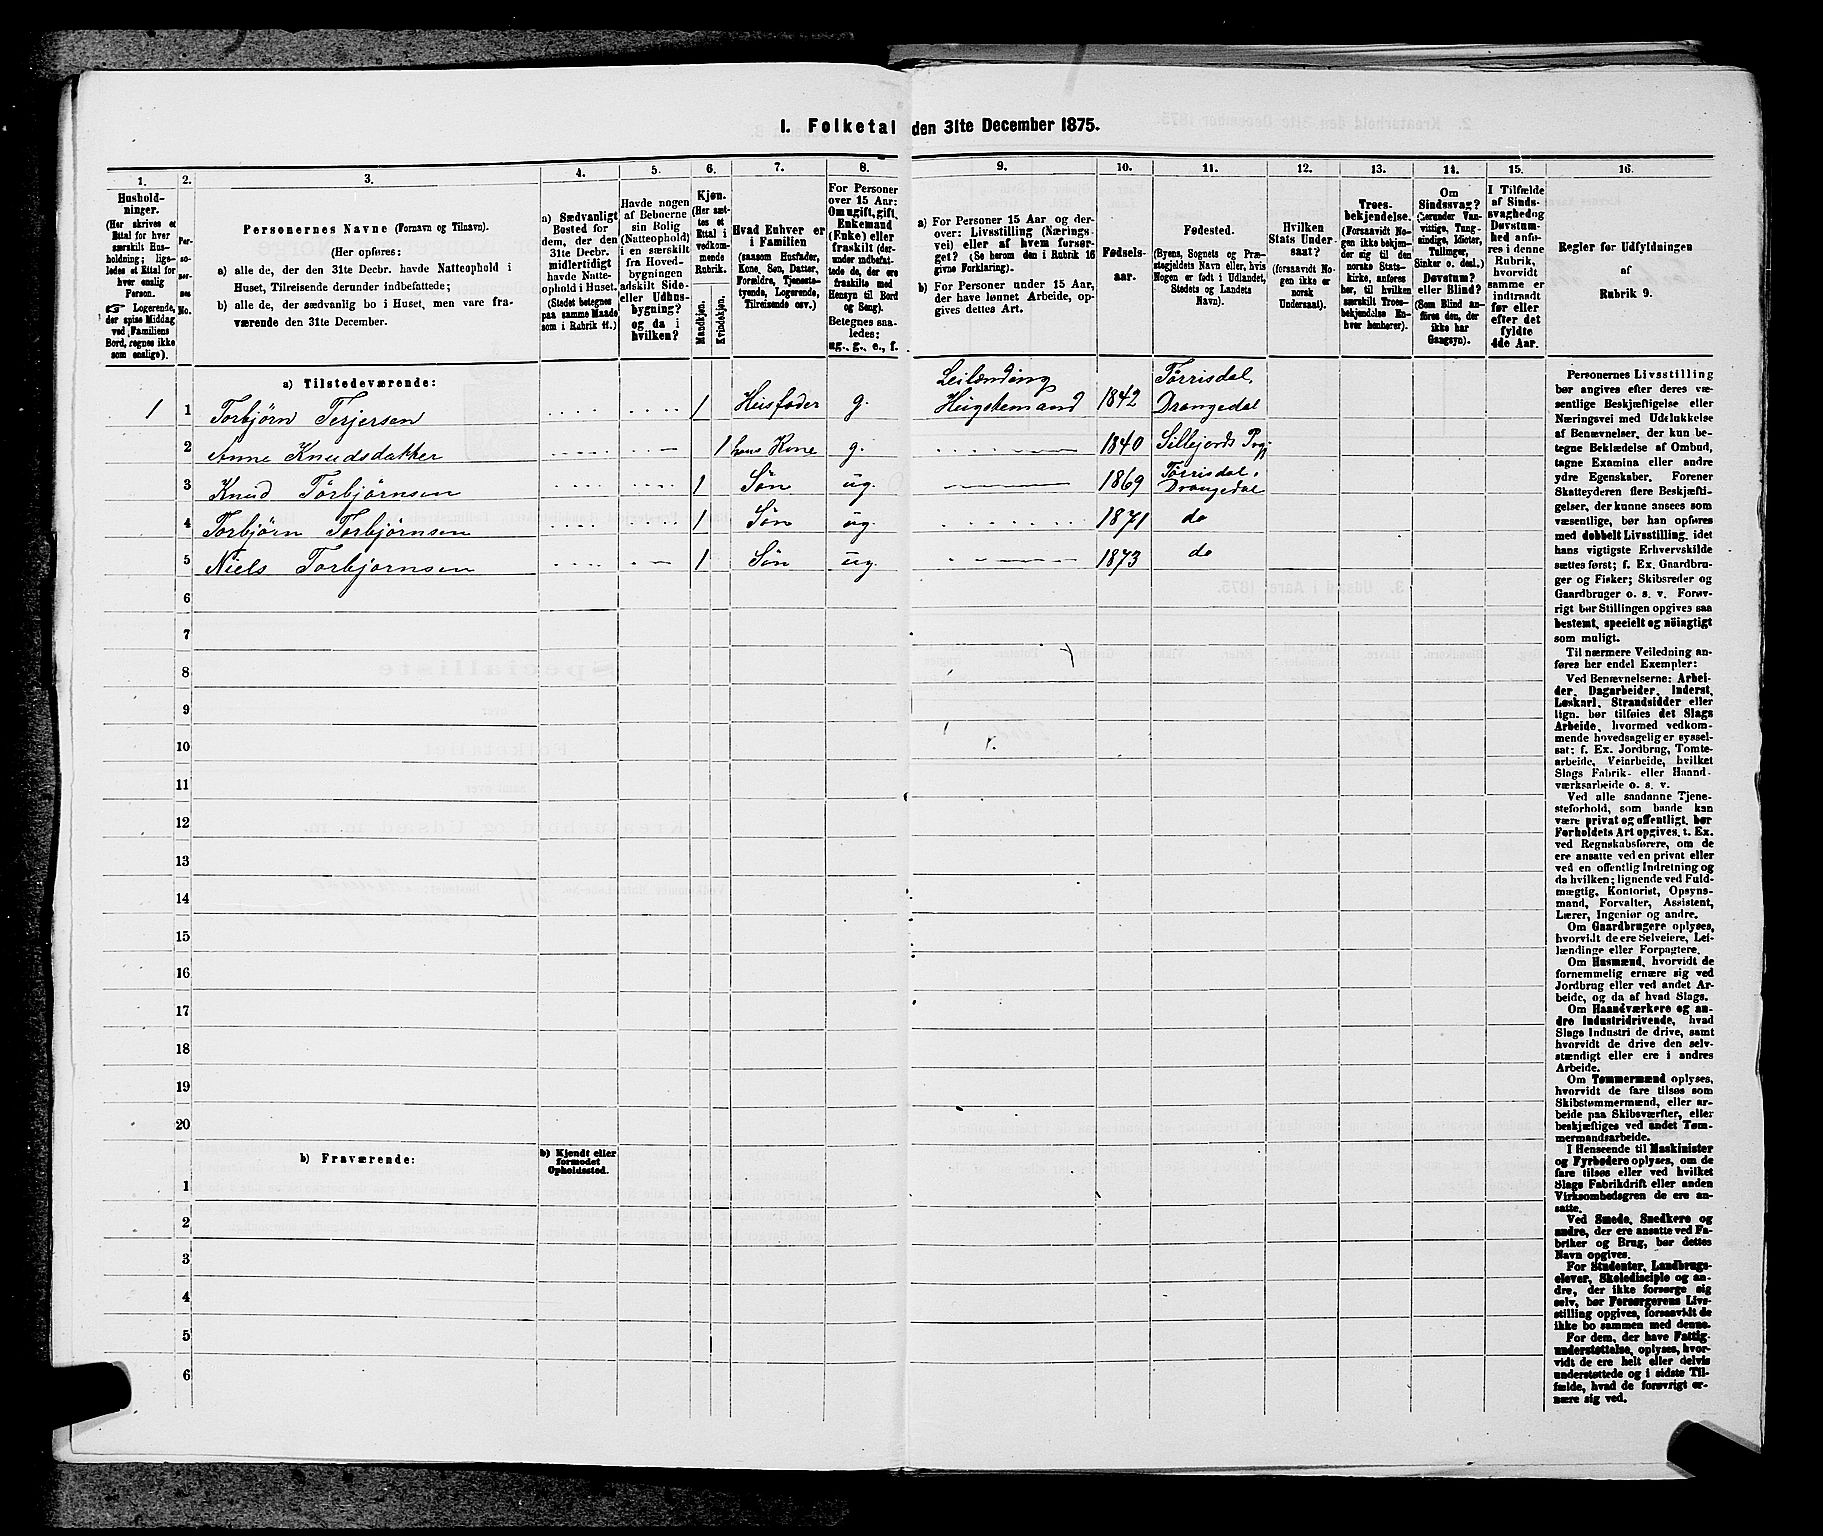 I. Folketal den 31te December 1875.
1.
Hushold-
ninger.
(Her skrives et
Ettal for hver
særskilt Hus-
holdning; lige-
ledes et Ettal for
hver enslig
Person.
Logerende,
der spise Middag
ved Familiens
Bord, regnes ikke
som enslige).
2.
Per-
so-
ner-
nes
No.
3.
Personernes Navne (Fornavn og Tilnavn).
(Her opføres:
a) alle de, der den 31te Decbr. havde Natteophold i
Huset, Tilreisende derunder indbefattede;
b) alle de, der sædvanlig bo i Huset, men vare fra-
værende den 31te December.
4.
a) Sædvanligt
Bosted for
dem, der den
31te Decbr.
midlertidigt
havde Natte-
ophold i Huset.
(Stedet betegnes
paa samme Maade
som i Rubrik 11.)
5.
Havde nogen
af Beboerne
sin Bolig
(Natteophold)
i en særskilt
fra Hoved-
bygningen
adskilt Side-
eller Udhus-
bygning?
og da i
hvilken?
6.
Kjøn.
(Her sæt-
tes et
Ettal i
vedkom-
mende
Rubrik.
Mandkjøn.
Kvindekjøn.
7.
Hvad Enhver er
i Familien
(saasom Husfader,
Kone, Søn, Datter,
Forældre, Tjeneste-
tyende, Logerende,
Tilreisende osv.)
8.
For Personer
over 15 Aar:
Om ugift, gift,
Enkemand
(Enke) eller
fraskilt (der-
under indbefat-
tede de, der ere
fraskilte med
Hensyn til Bord
og Seng).
Betegnes saa-
ledes:
ug., g., e., f.
9.
a) For Personer 15 Aar og der-
over: Livsstilling (Nærings-
vei) eller af hvem forsør-
get? (Se herom den i Rubrik 16
givne Forklaring).
b) For Personer under 15 Aar,
der have lønnet Arbeide, op-
gives dettes Art.
10.
Fødsels-
aar.
11.
Fødested.
(Byens, Sognets og Præ-
stegjeldets Navn eller, hvis
Nogen er født i Udlandet,
Stedets og Landets
Navn).
12.
Hvilken
Stats Under-
saat?
(forsaavidt No-
gen ikke er
norsk
Undersaat).
13.
Troes-
bekjendelse.
(Forsaavidt No-
gen ikke bekjen-
der sig til den
norske Stats-
kirke, anføres
her, til hvilken
særskilt Troes-
bekjendelse En-
hver henhører).
14.
Om
Sindssvag?
(herunder Van-
vittige, Tung-
sindige, Idioter,
Tullinger,
Sinker o. desl.)
Døvstum?
eller Blind?
(Som Blind an-
føres den, der
ikke har
Gangsyn).
15.
I Tilfælde
af Sinds-
svaghed og
Døvstum-
hed anfø-
res i denne
Rubrik,
hvorvidt
samme er
indtraadt
før eller
efter det
fyldte
4de Aar.
16.
Regler for Udfyldningen
af
Rubrik 9.
a) Tilstedeværende:
1 1 Torbjørn Terjersen 1 Husfader g. Leilænding Hugstemand 1842 Tørrisdal, Drangedal
2 Anne Knudsdatter 1 hans Kone g. 1840 Sillejords Prgj
3 Knud Torbjørnsen 1 Søn ug. 1869 Tørrisdal, Drangedal
4 Torbjørn Torbjørnsen 1 Søn ug. 1871 do
5 Niels Torbjørnsen 1 Søn ug. 1873 do
6
7
8
9
10
11
12
13
14
15
16
17
18
19
20
b) Fraværende:
b) Kjendt eller
formodet
Opholdssted.
1
2
3
4
5
6
Personernes Livsstilling
bør angives efter deres væ-
sentlige Beskjæftigelse eller
Næringsvei med Udelukkelse
af Benævnelser, der kun be-
tegne Beklædelse af Ombud,
tagne Examina eller andre
ydre Egenskaber. Forener
Skatteyderen flere Beskjæfti-
gelser, der kunne ansees som
væsentlige, bør han opføres
med dobbelt Livsstilling, idet
hans vigtigste Erhvervskilde
sættes først; f. Ex. Gaardbru-
ger og Fisker; Skibsreder og
Gaardbruger o. s. v. Forøv-
rigt bør Stillingen opgives saa
bestemt, specielt og nöiagtigt
som muligt.
Til nærmere Veiledning an-
føres her endel Exempler:
Ved Benævnelserne: Arbei-
der, Dagarbeider, Inderst,
Løskarl, Strandsidder eller
lign. bør tilføies det Slags
Arbeide, hvormed vedkom-
mende hovedsagelig er syssel-
sat; f. Ex. Jordbrug, Tomte-
arbeide, Veiarbeide, hvilket
Slags Fabrik- eller Haand-
værksarbeide o. s. v.
Ved alle saadanne Tjene-
steforhold, som baade kan
være privat og offentligt, bør
Forholdets Art opgives, t. Ex.
ved Regnskabsførere, om de
ere ansatte ved en privat eller
ved en offentlig Indretning og
da hvilken; lignende ved Fuld-
mægtig, Kontorist, Opsyns-
mand, Forvalter, Assistent,
Lærer, Ingeniør og andre.
Om Gaardbrugere oplyses,
hvorvidt de ere Selveiere, Lei-
lændinge eller Forpagtere.
Om Husmænd, hvorvidt de
fornemmelig ernære sig ved
Jordbrug eller ved andet Ar-
beide, og da af hvad Slags.
Om Haandværkere og an-
dre Industridrivende, hvad
Slags Industri de drive, samt
hvorvidt de drive den selv-
stændigt eller ere i andres
Arbeide.
Om Tømmermænd oplyses,
hvorvidt de fare tilsøs som
Skibstømmermænd, eller ar-
beide paa Skibsværfter, eller
beskjæftiges ved andet Tøm-
mermandsarbeide.
I Henseende til Maskinister
og Fyrbødere oplyses, om de
fare tilsøs eller ved hvilket
Slags Fabrikdrift eller anden
Virksomhedsgren de ere an-
satte.
Ved Smede, Snedkere og
andre, der ere ansatte ved Fa-
briker og Brug, bør dettes
Navn opgives.
For Studenter, Landbrugs-
elever, Skoledisciple og an-
dre, der ikke forsørge sig
selv, bør Forsørgerens Livs-
stilling opgives, forsaavidt de
ikke bo sammen med denne.
For dem, der have Fattig-
understøttelse, oplyses, hvor-
vidt de ere helt eller delvis
understøttede og i sidste Til-
fælde, hvad de forøvrigt er-
nære sig ved.